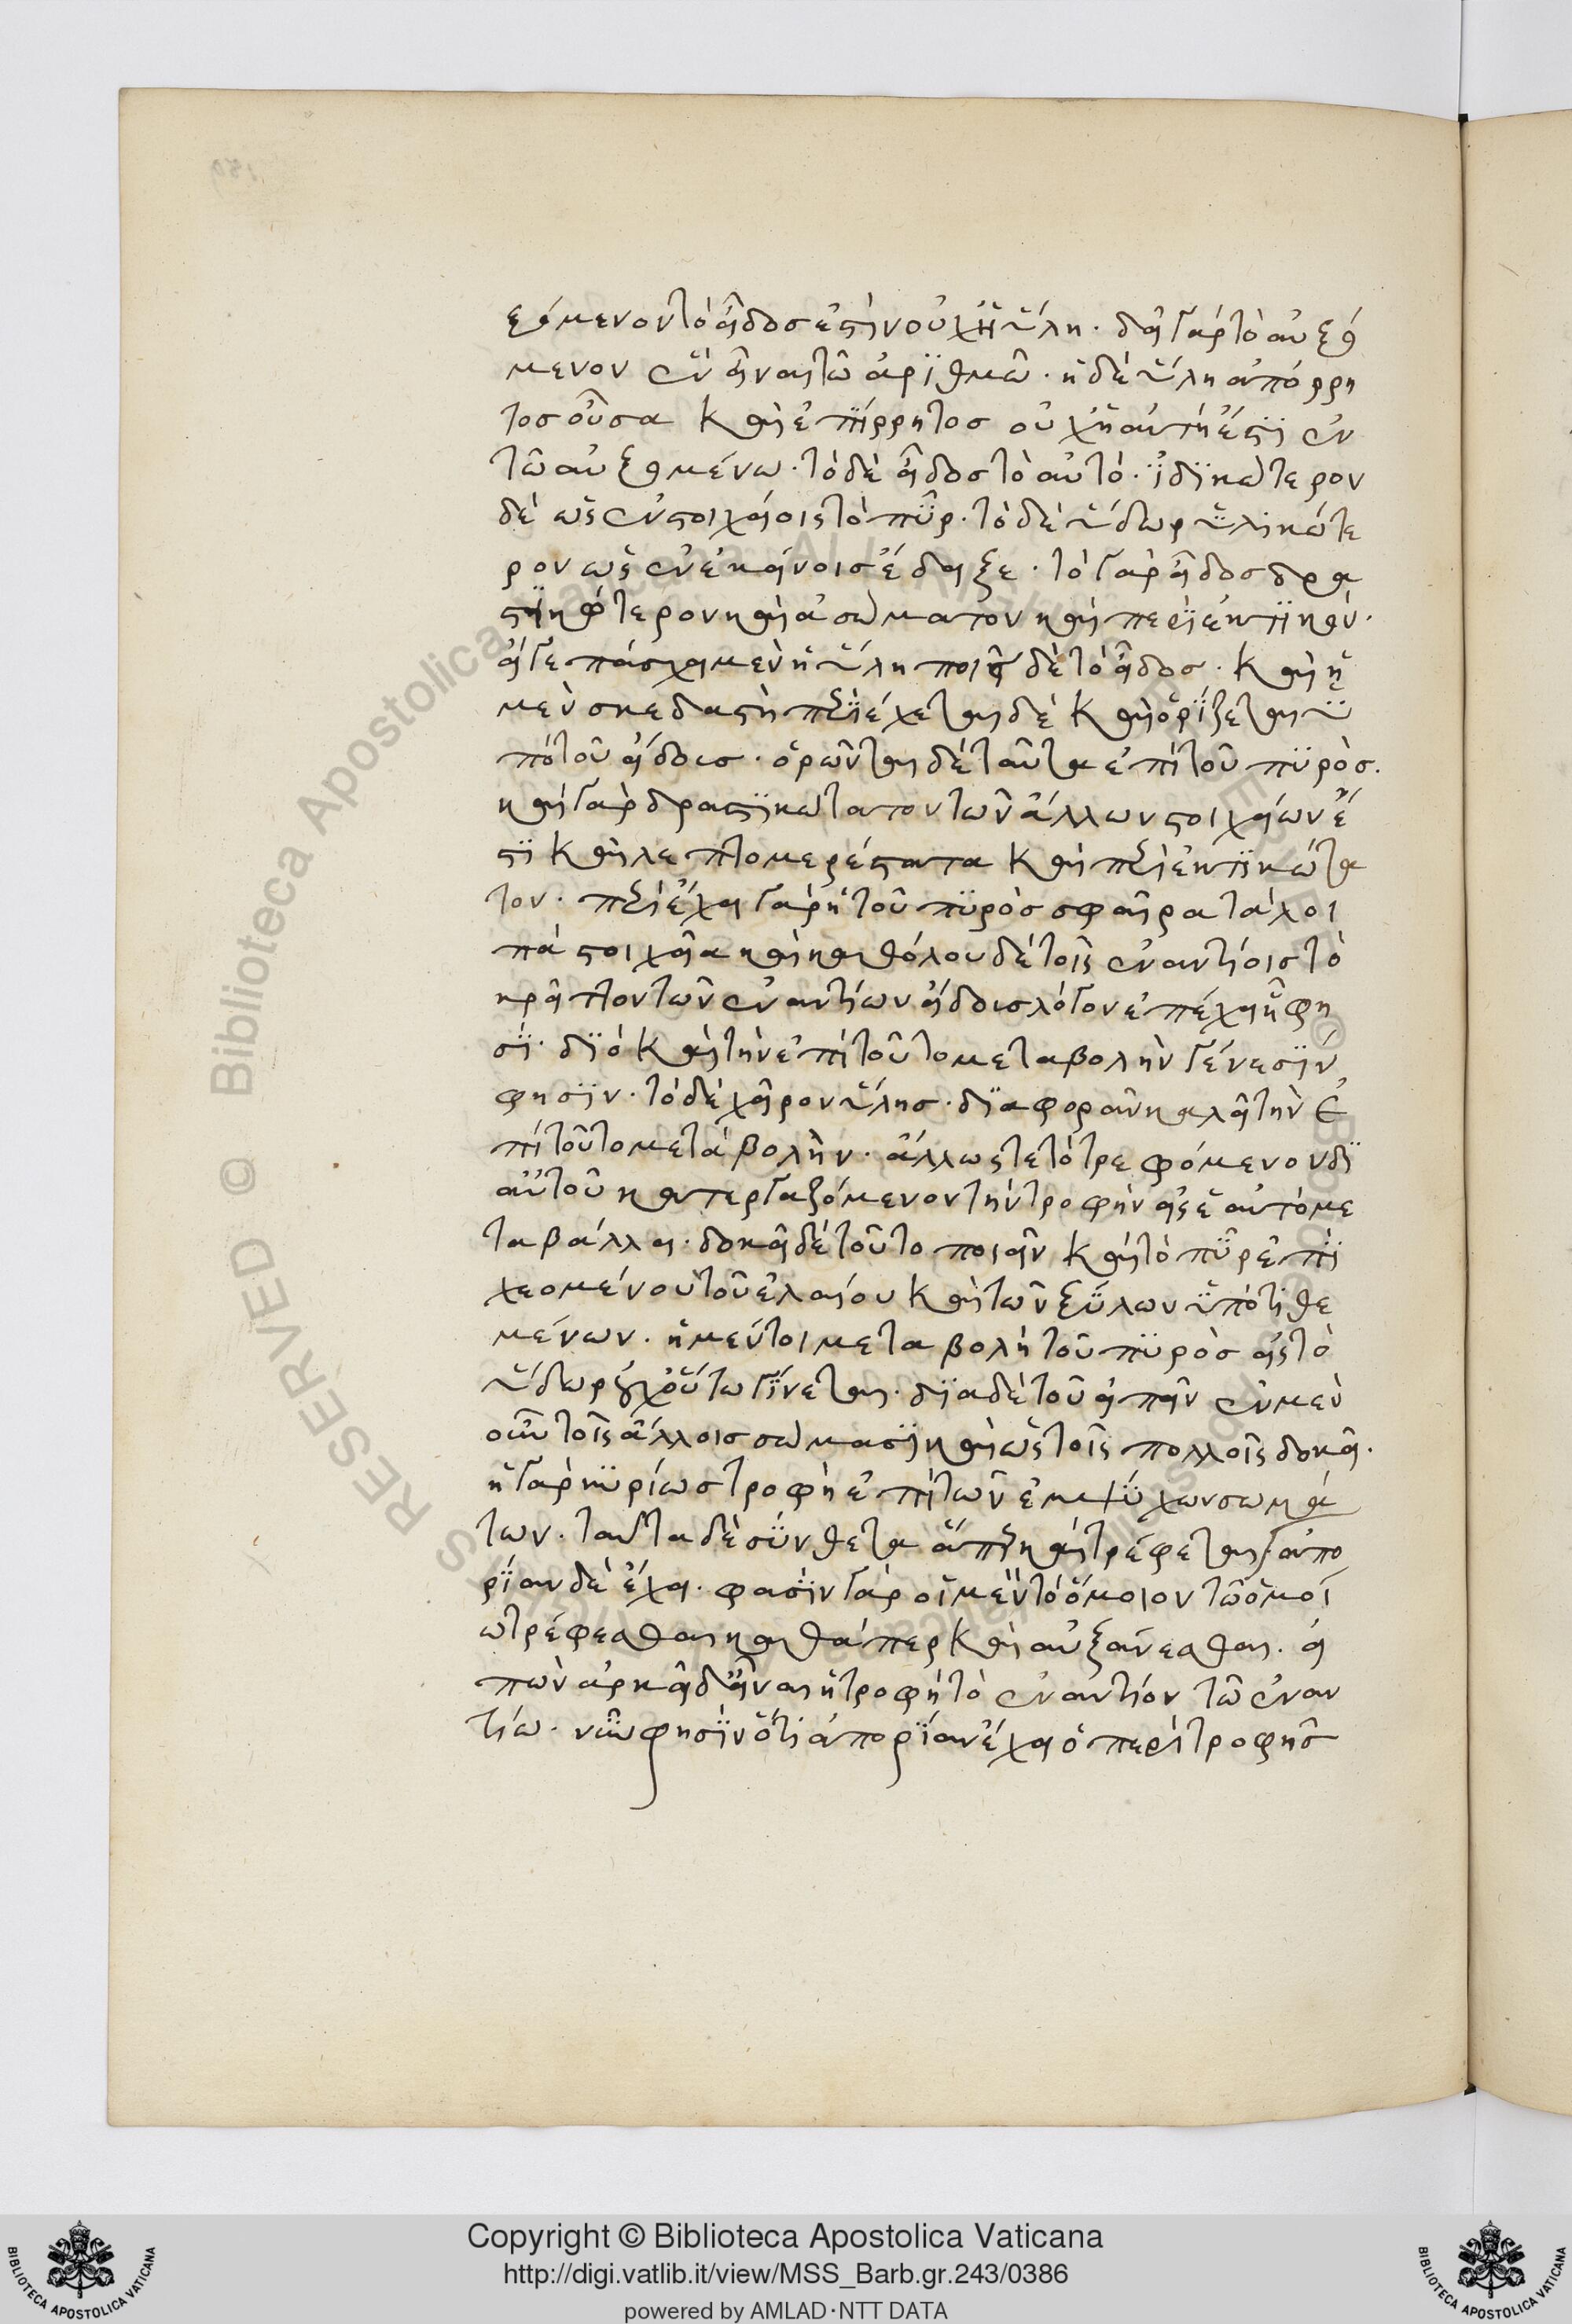 ξόμενον τὸ εἶδος ἐστὶν οὐχ ἡ ὕλη. δεῖ γὰρ τὸ αὐξό
μενον ἓν εἶναι τῶ ἀρϊθμῶ. ἡ δὲ ὕλη ἀπόρρη
τος οὖσα καὶ ἐπίρρητος οὐχ ἡ αὐτή ἐστι ἐν
τῶ αὐξομένω. τὸ δὲ εἶδος τὸ αὐτό. ἰδϊκώτερον
δὲ ὡς ἐν στοιχείοις τὸ πῦρ. τὸ δὲ ὕδωρ ὑλικώτε
ρον ὡς ἐν ἐκείνοις ἔδειξε. τὸ γὰρ εἶδος δρα
στϊκώτερον καὶ ἀσώματον καὶ περιεκτικόν.
εἴγε πάσχει μὲν ἡ ὕλη ποιεῖ δὲ τὸ εἶδος. καὶ ἡ
μὲν σκεδαστὴ περιέχεται δὲ καὶ ὁρίζεται ὑ
πὸ τοῦ εἴδους. ὁρῶνται δὲ ταῦτα ἐπὶ τοῦ πϋρός.
καὶ γὰρ δραστϊκώτατον τῶν ἄλλων στοιχείων ἐ
στϊ καὶ λεπτομερέστατα καὶ περιεκτϊκώτα
τον. περιέχει γὰρ ἡ τοῦ πϋρὸς σφαῖρα τὰ λοι
πὰ στοιχεῖα καὶ καθόλου δὲ τοῖς ἐναντίοις τὸ
κρεῖττον τῶν ἐναντίων εἴδους λόγον ἐπέχειν φη
σϊ. διὸ καὶ τὴν ἐπὶ τοῦτο μεταβολὴν γένεσϊν
φησϊν. τὸ δὲ χεῖρον ὕλης. δϊαφορὰν καλεῖ τὴν ἐ
πὶ τοῦτο μεταβολὴν. ἄλλως τε τὸ τρεφόμενον δϊ
αὐτοῦ κατεργαζόμενον τὴν τροφὴν εἰς ἑαυτὸ με
ταβάλλει. δοκεῖ δὲ τοῦτο ποιεῖν καὶ τὸ πῦρ ἐπϊ
χεομένου τοῦ ἐλαίου καὶ τῶν ξϋλων ὑποτιθε
μένων. ἡ μέντοι μεταβολὴ τοῦ πϋρὸς εἰς τὸ
ὕδωρ οὐχ οὕτω γίνεται. δϊα δὲ τοῦ εἰπεῖν ἐν μὲν
οὖν τοῖς ἄλλοις σώμασϊ καὶ ὡς τοῖς πολλοῖς δοκεῖ.
ἡ γὰρ κϋρίως τροφὴ ἐπὶ τῶν ἐμψϋχων σωμά
των. ταῦτα δὲ σϋνθετα ἅπερ καὶ τρέφεται ἀπο
ρϊαν δὲ ἔχει. φασϊν γὰρ οἱ μὲν τὸ ὅμοιον τῶ ὁμοί
ω τρέφεσθαι καθάπερ καὶ αὐξάνεσθαι. εἰ
πὼν ἀρκεῖ δ' εἶναι ἡ τροφὴ τὸ ἐναντίον τῶ ἐναν
τίω. νῦν φησϊν ὅτι ἀπορϊαν ἔχει ὁ περὶ τροφῆς
Copyright © Biblioteca Apostolica Vaticana
http://digi.vatlib.it/view/MSS_Barb.gr.243/0386
powered by AMLAD·NTT DATA